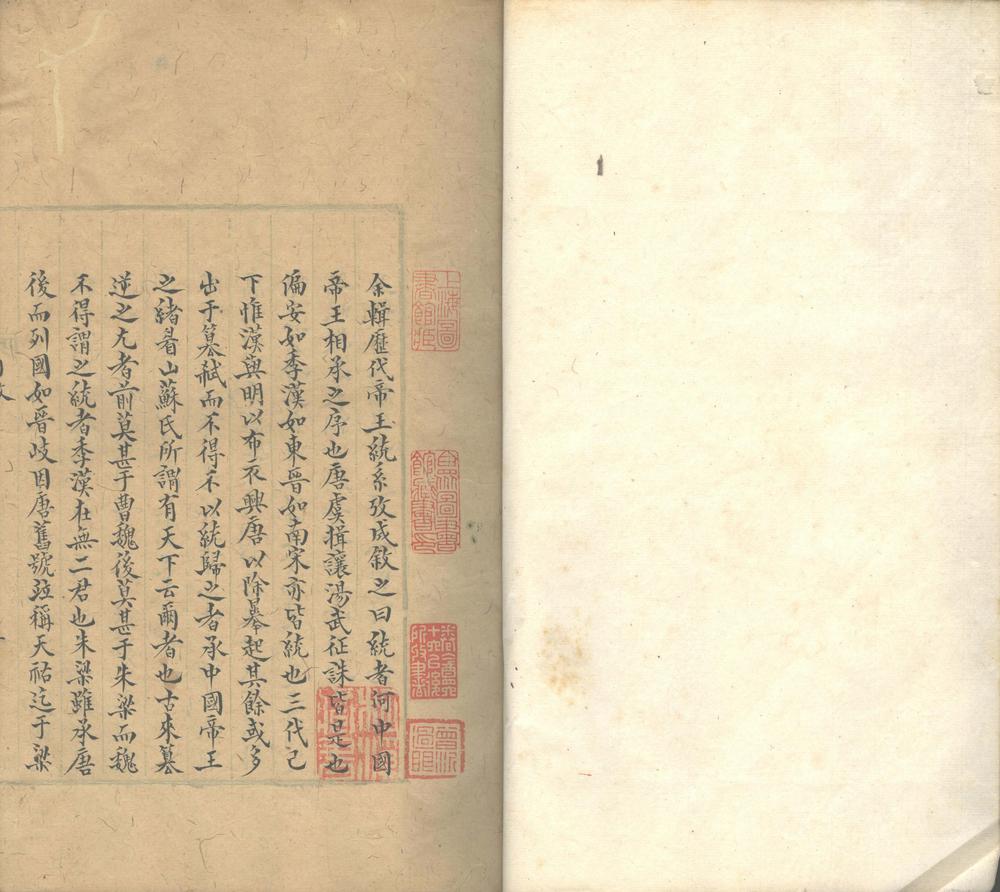 余輯歷代帝王統系攷成敘之曰統者何中國
帝王相承之序也唐虞揖讓湯武征誅皆是也
偏安如季漢如東晉如南宋亦皆統也三代已
下惟漢與明以布衣興唐以除暴起其餘或多
出于篡弒而不得不以統歸之者承中國帝王
之緒眉山蘇氏所謂有天下云爾者也古來篡
逆之尤者前莫甚于曹魏後莫甚于朱梁而魏
不得謂之統者季漢在無二君也朱梁雖承唐
後而列國如晉岐因唐舊號竝稱天祐迄于梁
上海圖書館藏